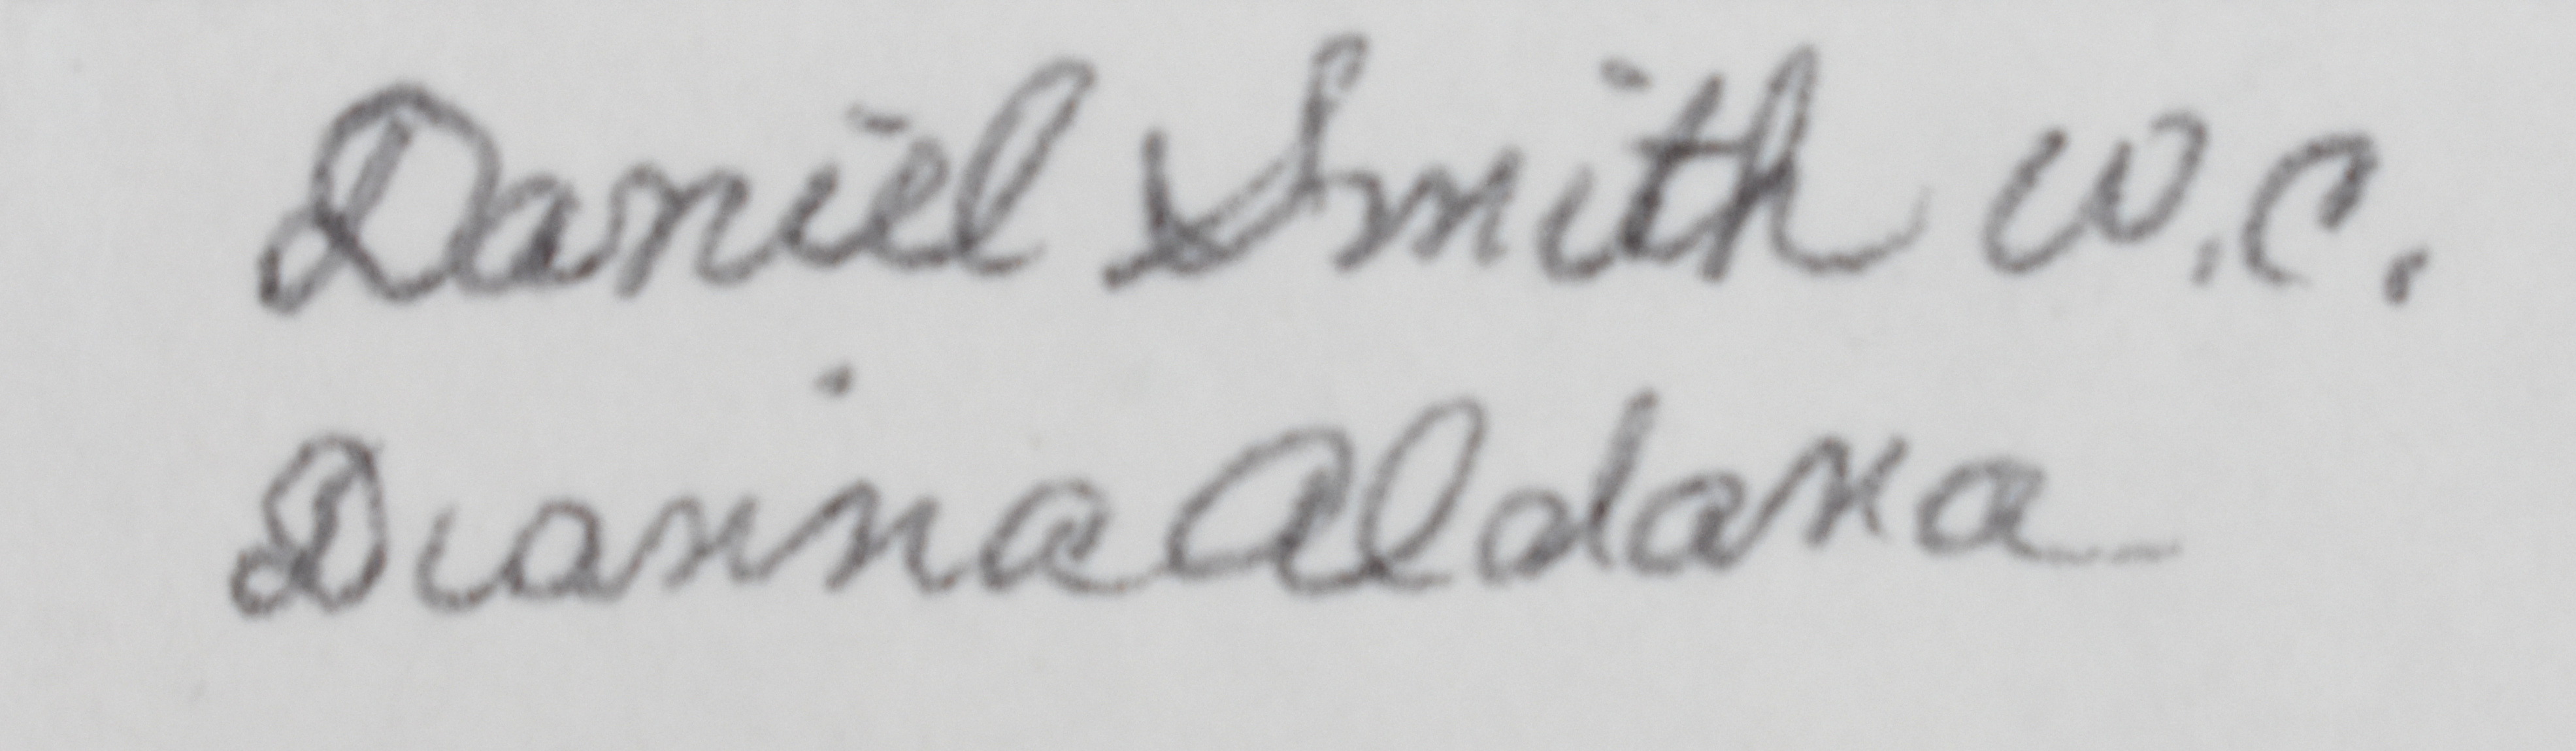 Daniel Smith W.C.
Dianna Aldana